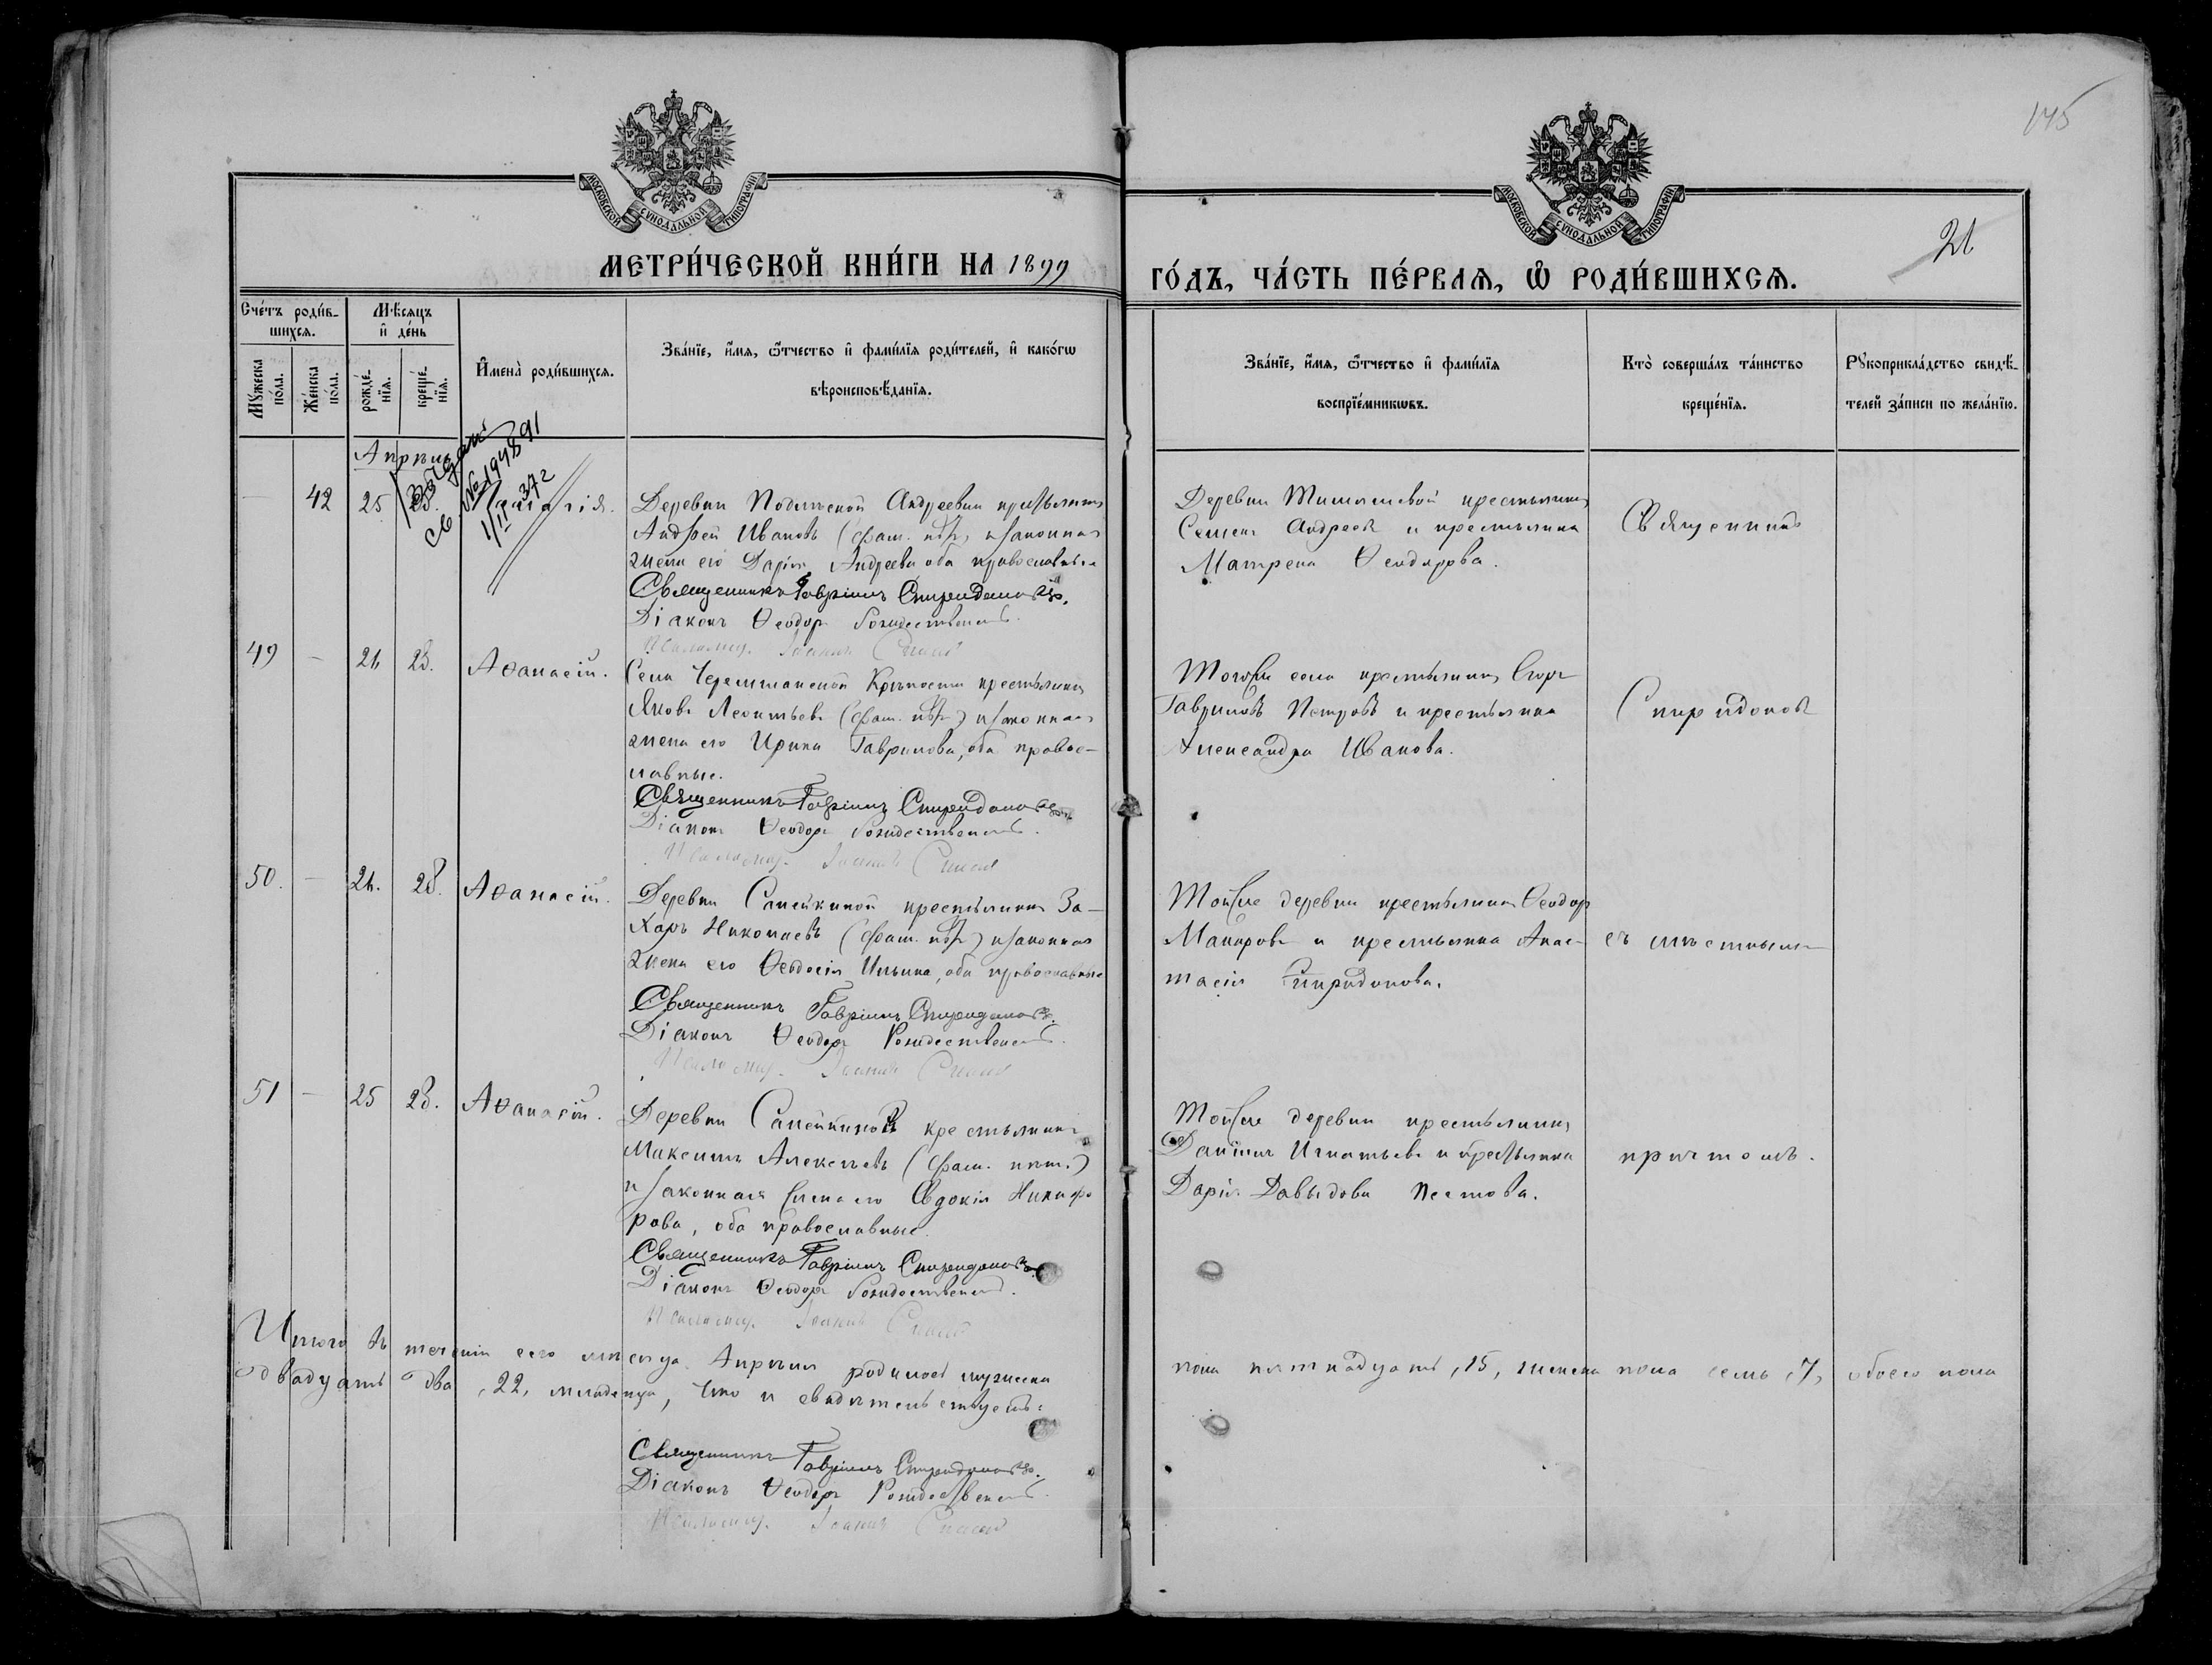 145
МОСКОВСКОЙ СѴНОДАЛЬНОЙ ТИПОГРАФІИ
МОСКОВСКОЙ СѴНОДАЛЬНОЙ ТИПОГРАФІИ
21
МЕТРИ́ЧЕСКОЙ КНИ́ГИ НА 1899
ГО́ДЪ, ЧА́СТЬ ПЕ́РВАѦ, Ѡ РОДИ́ВШИХСѦ.
Сче́тъ роди́в-
шихсѧ.
Мꙋ́жеска по́ла.
Же́нска по́ла.
Мѣ́сѧцъ
и҆ де́нь
рожде́-
нїѧ.
креще́-
нїѧ.
И҆мена̀ роди́вшихсѧ.
Зва́нїе, и҆́мѧ, ѻ҆́тчество и҆ фами́лїѧ роди́телей, и҆ како́гѡ
вѣроисповѣ́данїѧ.
Зва́нїе, и҆́мѧ, ѻ҆́тчество и҆ фами́лїѧ
воспрїе́мникѡвъ.
Кто̀ соверша́лъ та́инство
креще́нїѧ.
Рꙋкоприкла́дство свидѣ́-
телей за́писи по жела́нїю.
Апрѣль
42 25
Деревни Андреевки крестьянинъ
Андрей Ивановъ и законная
жена его Дарія Андреева оба православные
Священникъ Гавріилъ Спиридоновъ.
Діаконъ Ѳеодоръ Рождественскій.
Деревни крестьянинъ
Семенъ Андреевъ и крестьянка
Матрена Ѳеодорова.
Священникъ
49 — 21 28. Аѳанасій.
Села Черемшанской Крѣпости крестьянинъ
Яковъ Леонтьевъ и законная
жена его Ирина Гаврилова, оба правос-
лавные.
Священникъ Гавріилъ Спиридоновъ
Діаконъ Ѳеодоръ Рождественскій.
Тогоже села крестьянинъ Егоръ
Гавриловъ Петровъ и крестьянка
Александра Иванова.
Спиридоновъ
50. — 21. 28. Аѳанасій.
Деревни Самейкиной крестьянинъ За-
харъ Николаевъ и законная
жена его Ѳеодосія Ильина, оба православные
Священникъ Гавріилъ Спиридоновъ.
Діаконъ Ѳеодоръ Рождественскій.
Тойже деревни крестьянинъ Ѳеодоръ
Макаровъ и крестьянка Анас-
тасія Спиридонова.
съ мѣстнымъ
51 — 25 28. Аѳанасій.
Деревни Самейкиной крестьянинъ
Максимъ Алексѣевъ
и законная жена его Евдокія Никифо
рова, оба православные.
Священникъ Гавріилъ Спиридоновъ.
Діаконъ Ѳеодоръ Рождественскій.
Тойже деревни крестьянинъ
Даніилъ Игнатьевъ и крестьянка
Дарія Давыдова Пестова.
причтомъ.
Итого въ теченіи сего мѣсяца Апрѣля родилось мужеска
пола пятнадцать, 15, женска пола семь, 7, обоего пола
двадцать два, 22, младенца, что и свидѣтельствуемъ:
Священникъ Гавріилъ Спиридоновъ.
Діаконъ Ѳеодоръ Рождественскій.